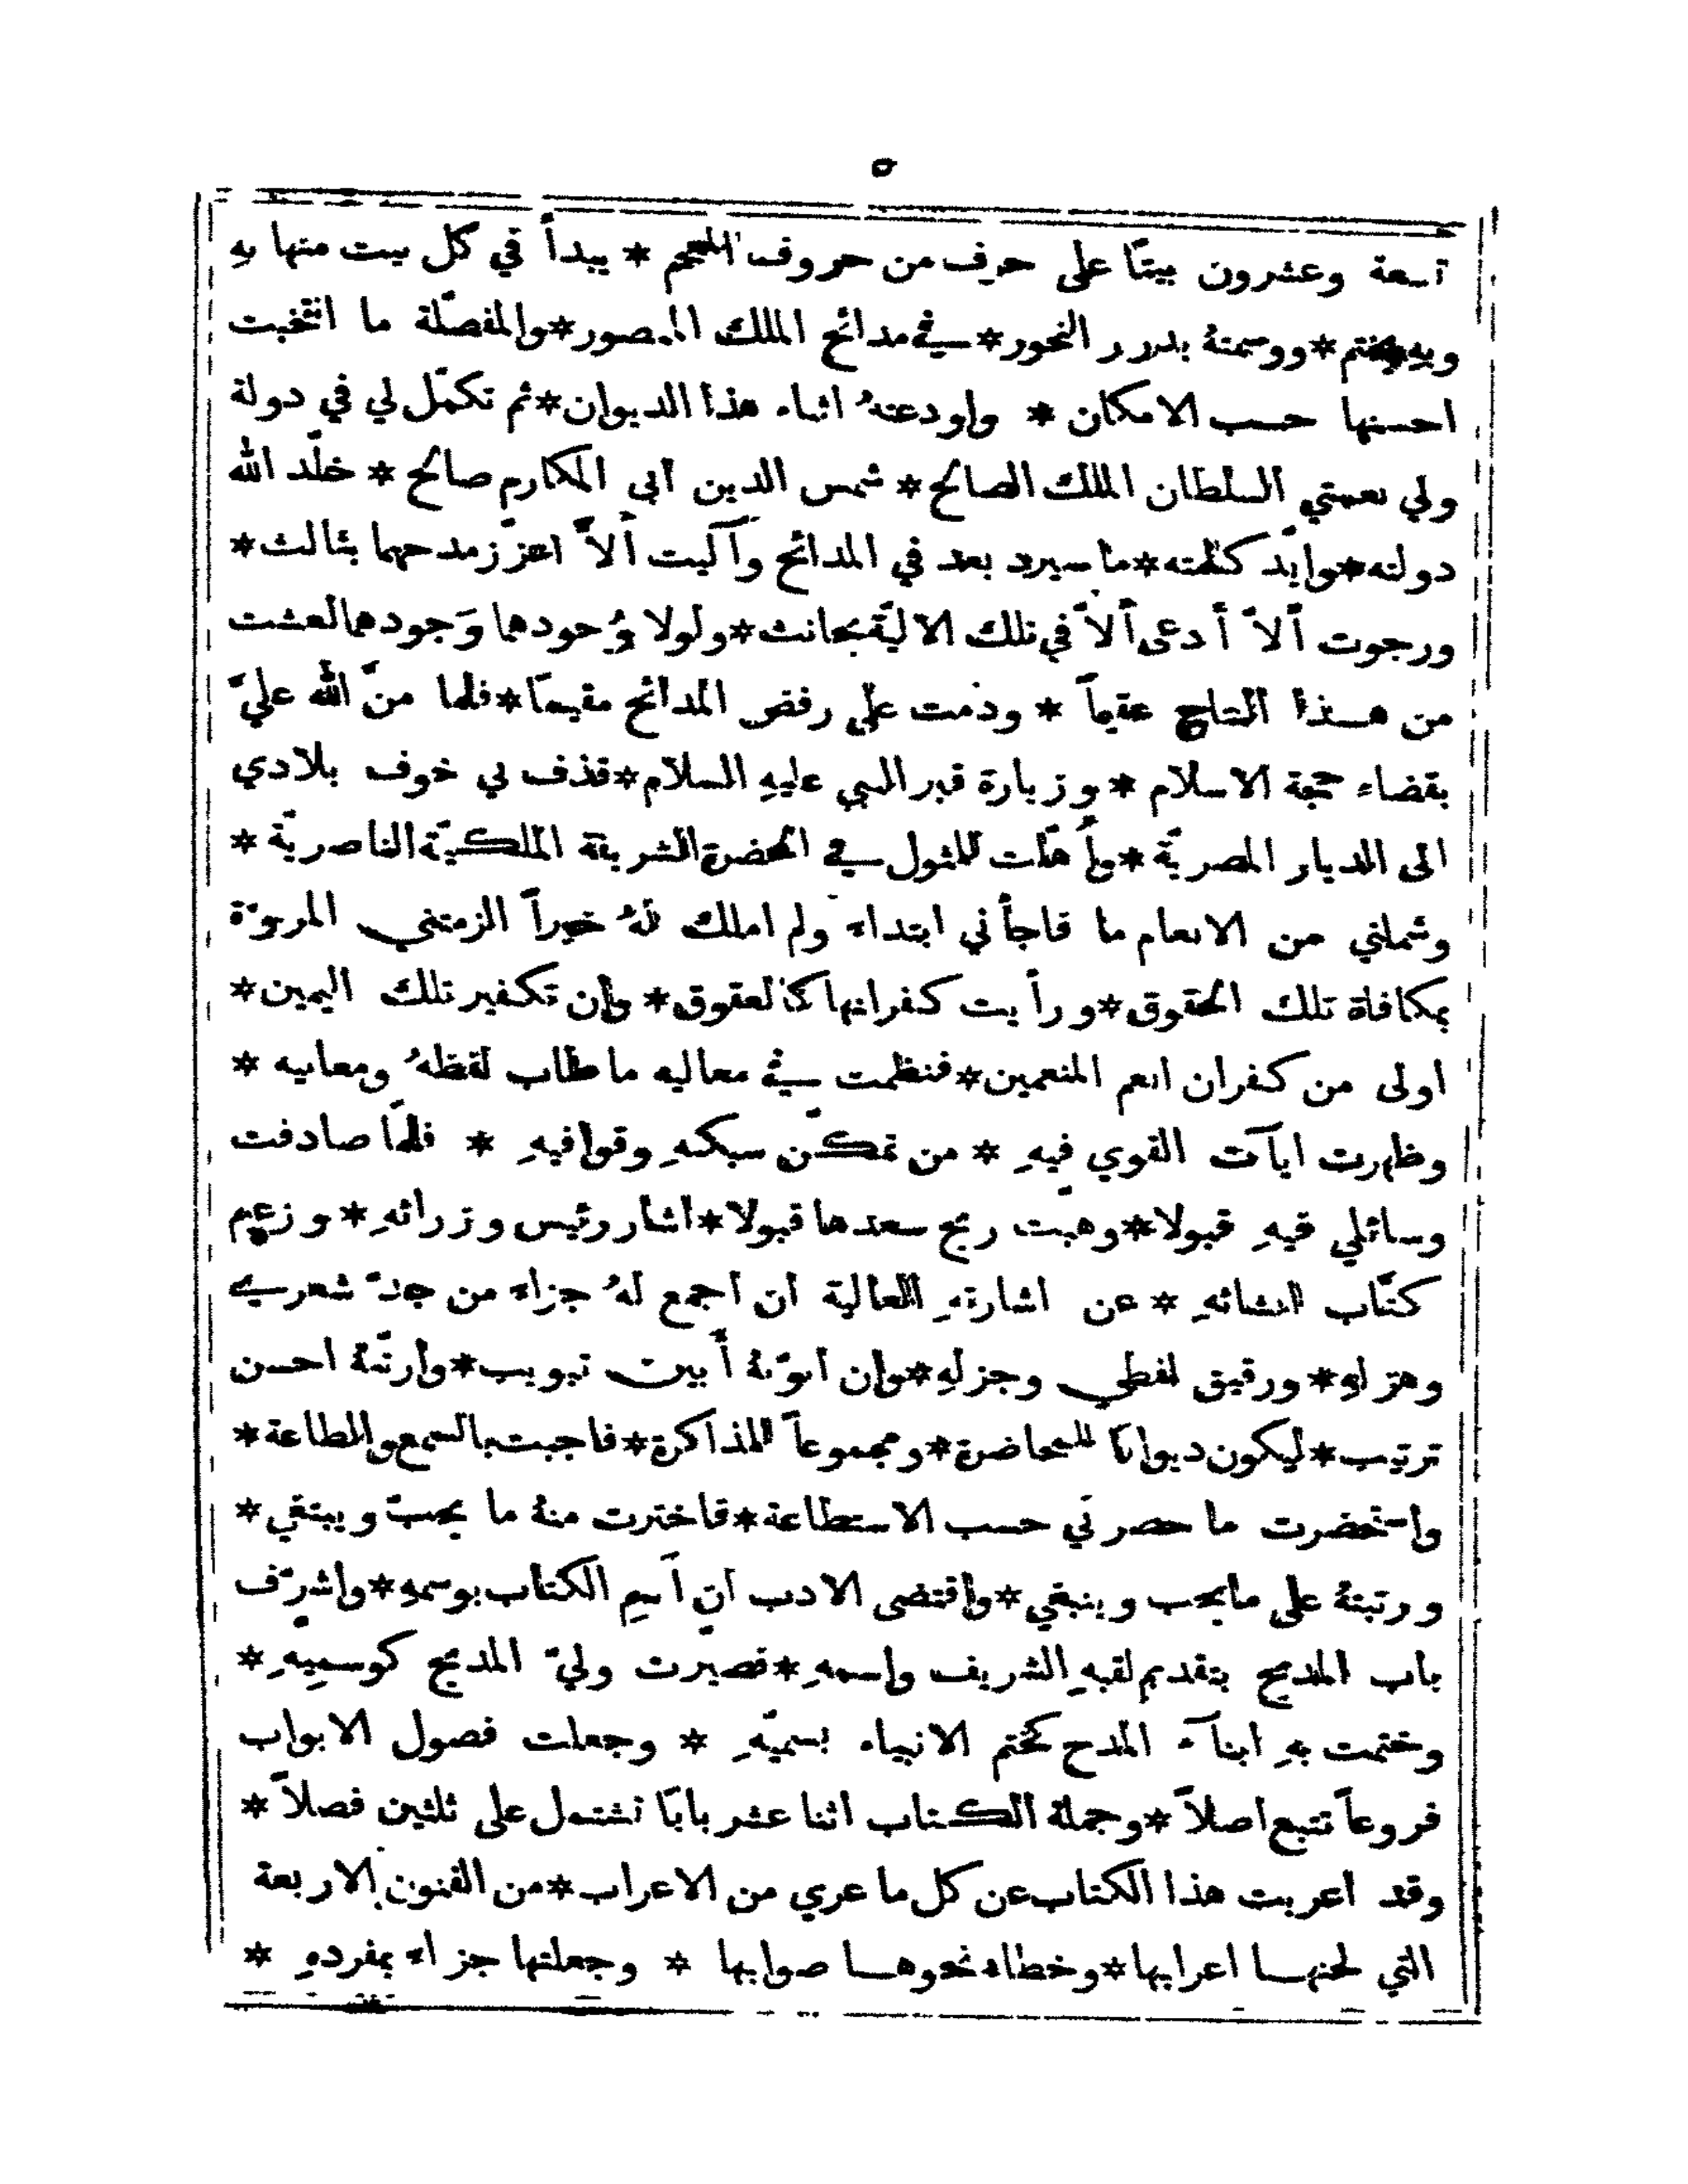 ٥
تسعة وعشرون بيتًا على حرف من حروف المعجم * يبدأ في كل بيت منها بهِ
وبهِ يختم * ووسمتهُ بدرر النحور * في مدائح الملك المنصور * والمفصّلة ما انتخبت
احسنها حسب الامكان * واودعتهُ اثناء هذا الديوان * ثم تكمّل لي في دولة
ولي نعمتي السلطان الملك الصالح * شمس الدين ابي المكارم صالح * خلّد الله
دولته * وابّد كلمته * ما سيرد بعد في المدائح وآليت ألاّ اعزّز مدحهما بثالث *
ورجوت ألاّ أدعى ألاّ في تلك الاليّة بحانث * ولولا وُجودهما وَجودهما لعشت
من هذا النتاج عقيماً * ودمت على رفض المدائح مقيمًا * فلما منّ الله عليّ
بقضاء حجة الاسلام * وزيارة قبر النبي عليهِ السلام * قذف بي خوف بلادي
الى الديار المصريّة * وأهّلت للمثول في الحضرة الشريفة الملكيّة الناصريّة *
وشملني من الانعام ما فاجأني ابتداء ولم املك لهُ خبراً الزمتني المروّة
بمكافاة تلك الحقوق * ورأيت كفرانها كالعقوق * وان تكفير تلك اليمين *
اولى من كفران انعم المنعمين * فنظمت في معاليه ما طاب لفظهُ ومعانيه *
وظهرت ايآت القوي فيهِ * من تمكّن سبكهِ وقوافيهِ * فلمّا صادفت
وسائلي فيهِ قبولا * وهبّت ريح سعدها قبولا * اشار رئيس وزرائهِ * وزعيم
كتّاب انشائهِ * عن اشارتهِ العالية ان اجمع لهُ جزاء من جدّ شعري
وهزلهِ * ورقيق لفظي وجزلهِ * وان ابوّبهُ أبين تبويب * وارتّبهُ احسن
ترتيب * ليكون ديوانًا للمحاضرة * ومجموعاً للمذاكرة * فاجبت بالسمع والطاعة *
واستحضرت ما حضرني حسب الاستطاعة * فاخترت منهُ ما يحبّ ويبتغي *
ورتبتهُ على ما يجب وينبغي * واقتضى الادب ان اَسِم الكتاب بوسمهِ * واشرّف
باب المديح بتقديم لقبهِ الشريف واسمهِ * فصيّرت وليّ المديح كوسميّهِ *
وختمت بهِ ابناۤء المدح كختم الانبياء بسميّهِ * وجعلت فصول الابواب
فروعاً تتبع اصلاً * وجملة الكتاب اثنا عشر بابًا تشتمل على ثلثين فصلاً *
وقد اعربت هذا الكتاب عن كل ما عري من الاعراب * من الفنون الاربعة
التي لحنها اعرابها * وخطاء نحوها صوابها * وجعلتها جزاء بمفردهِ *